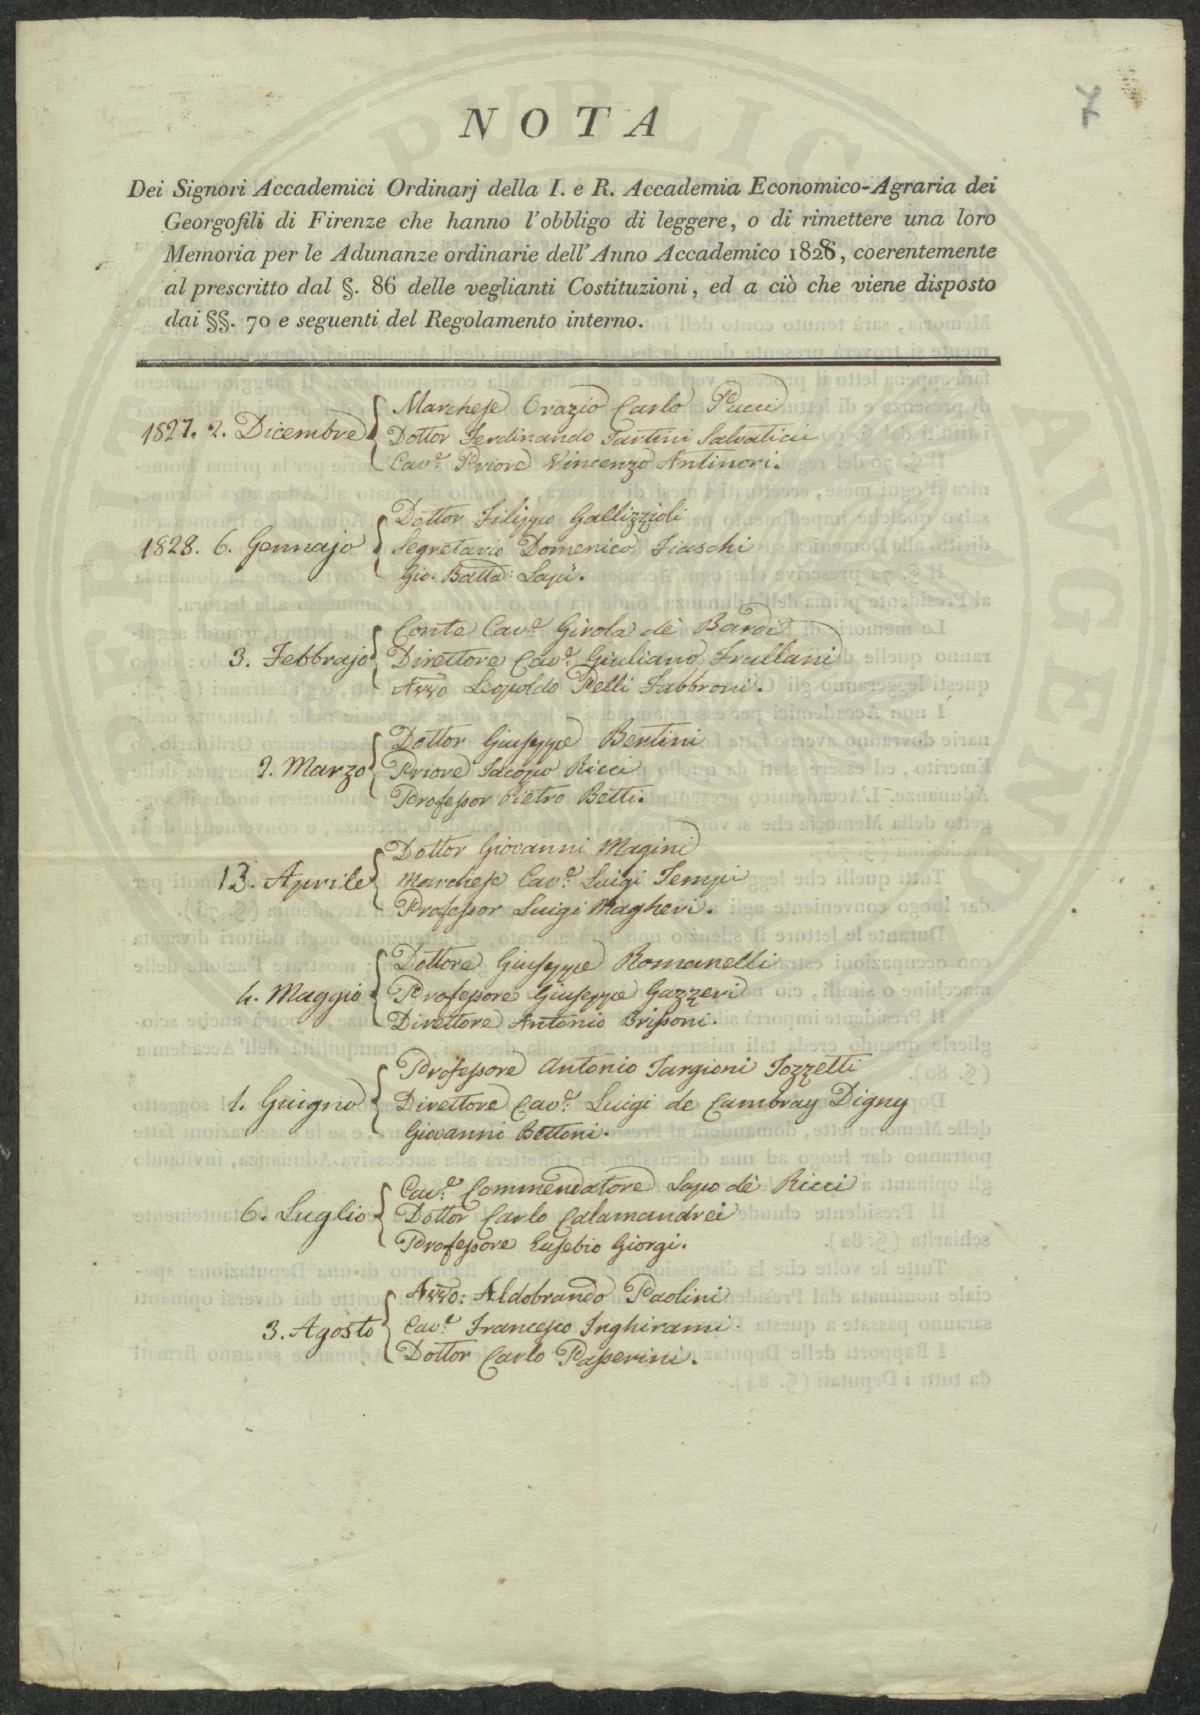 7
NOTA
Dei Signori Accademici Ordinarj della I. e R. Accademia Economico-Agraria dei
Georgofili di Firenze che hanno l'obbligo di leggere, o di rimettere una loro
Memoria per le Adunanze ordinarie dell'Anno Accademico 1828, coerentemente
al prescritto dal §. 86 delle veglianti Costituzioni, ed a ciò che viene disposto
dai §§. 70 e seguenti del Regolamento interno.
Marchese Orazio Carlo Pucci
1827. 2. Dicembre Dottor Ferdinando Tartini Salvatici
Cav.e Priore Vincenzo Antinori.
Dottor Filippo Gallizzioli
1828. 6. Gennajo Segretario Domenico Fiaschi
Gio. Batta: Lapi.
Conte Cav.e Girola de Bardi
3. Febbrajo Direttore Cav.e Giuliano Frullani
Avvo Leopoldo Pelli Fabbroni.
Dottor Giuseppe Bertini
2. Marzo Priore Jacopo Ricci
Professor Pietro Betti.
Dottor Giovanni Magini
13. Aprile Marchese Cav.e Luigi Tempi
Professor Luigi Magheri.
Dottore Giuseppe Romanelli
4. Maggio Professore Giuseppe Gazzeri
Direttore Antonio Brissoni.
Professore Antonio Targioni Tozzetti
1. Guigno Direttore Cav.e Luigi de Cambray Digny
Giovanni Bettoni.
Cav.e Commendatore Lapo de Ricci
6. Luglio Dottor Carlo Calamandrei
Professore Eusebio Giorgi.
Avvo: Aldobrando Paolini
3. Agosto Cav.e Francesco Inghirami
Dottor Carlo Passerini.